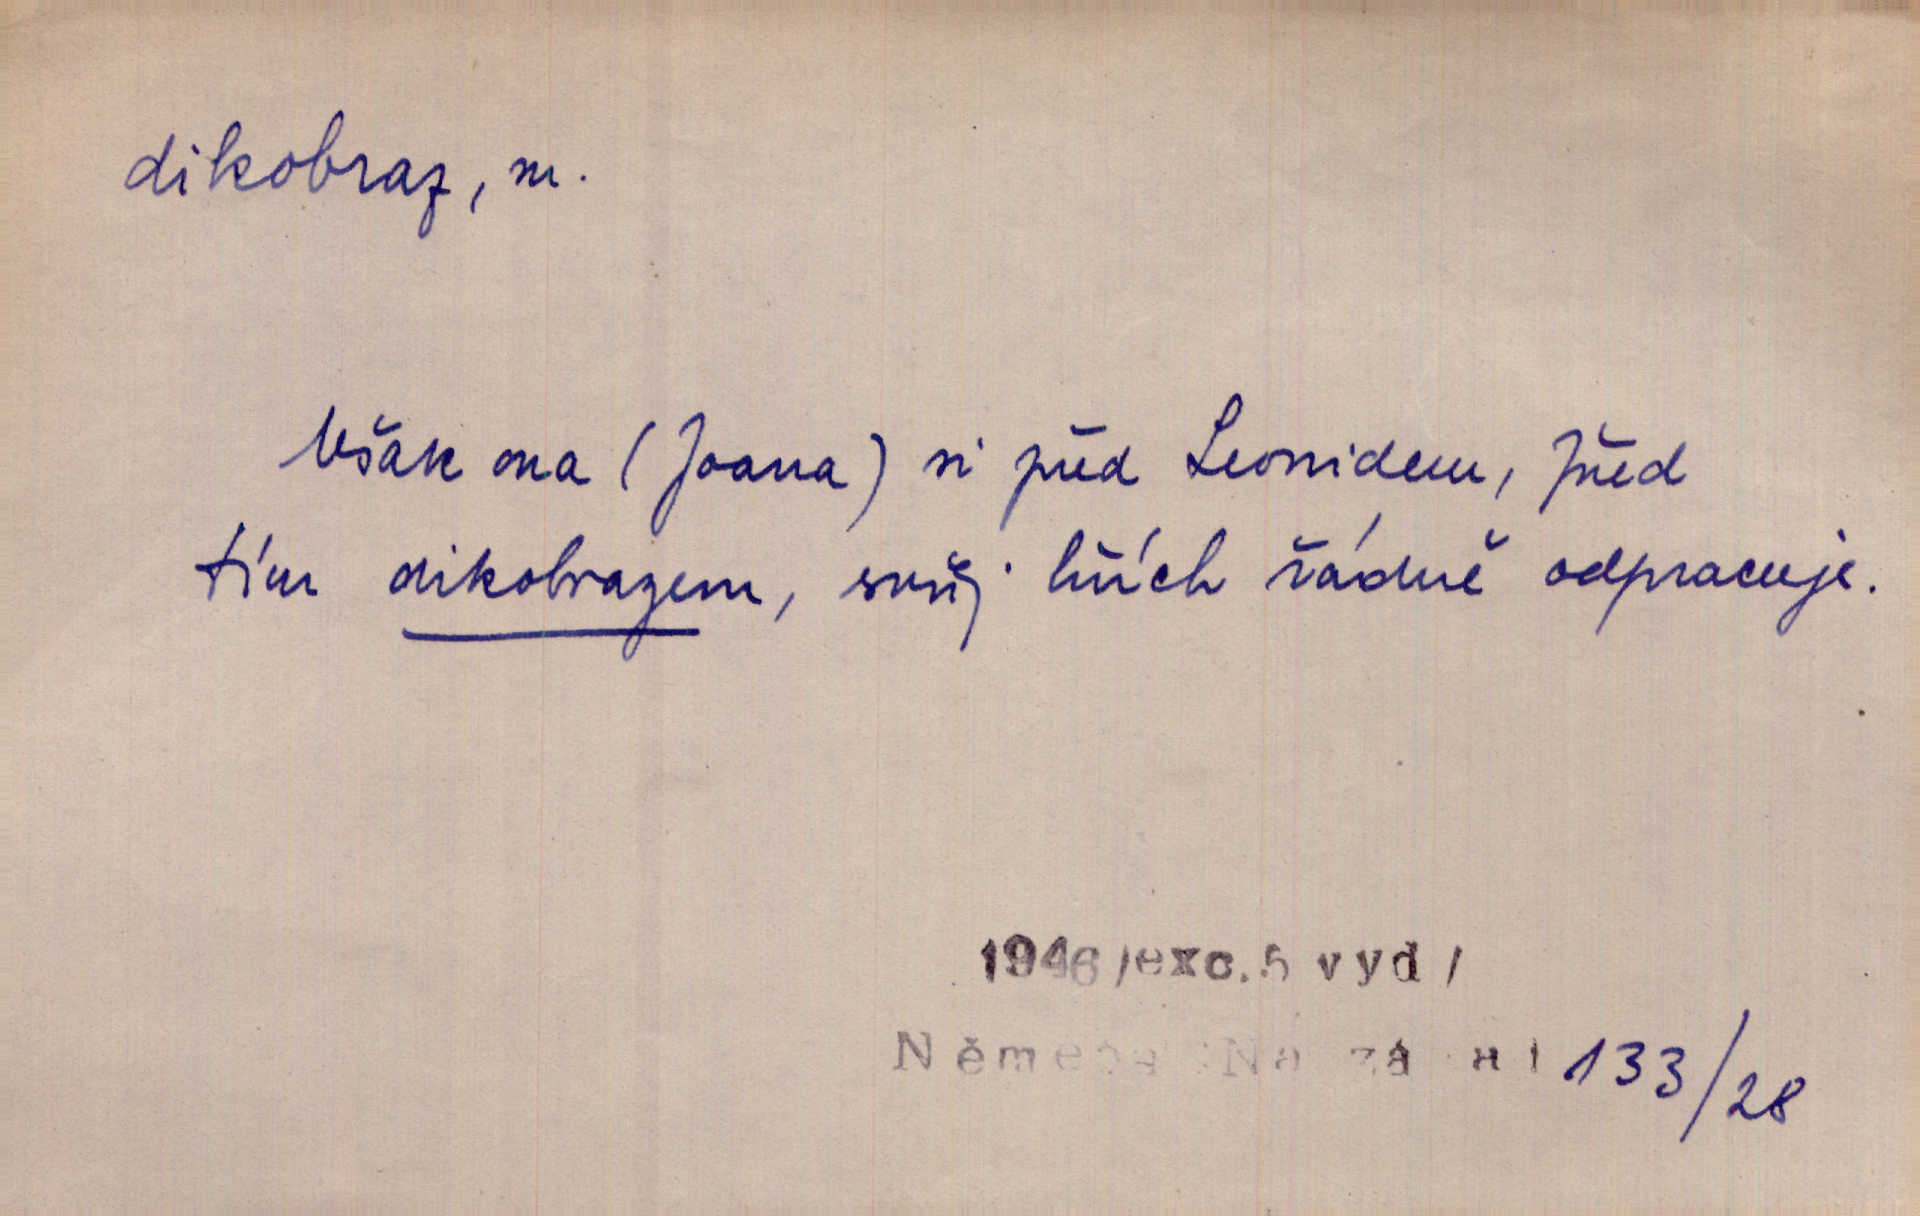 dikobraz, m.
Však ona (Joana) si před Leonidem, před
tím dikobrazem, svůj hřích řádně odpracuje.
1946 /exc. 5 vyd /
Němec 133/28